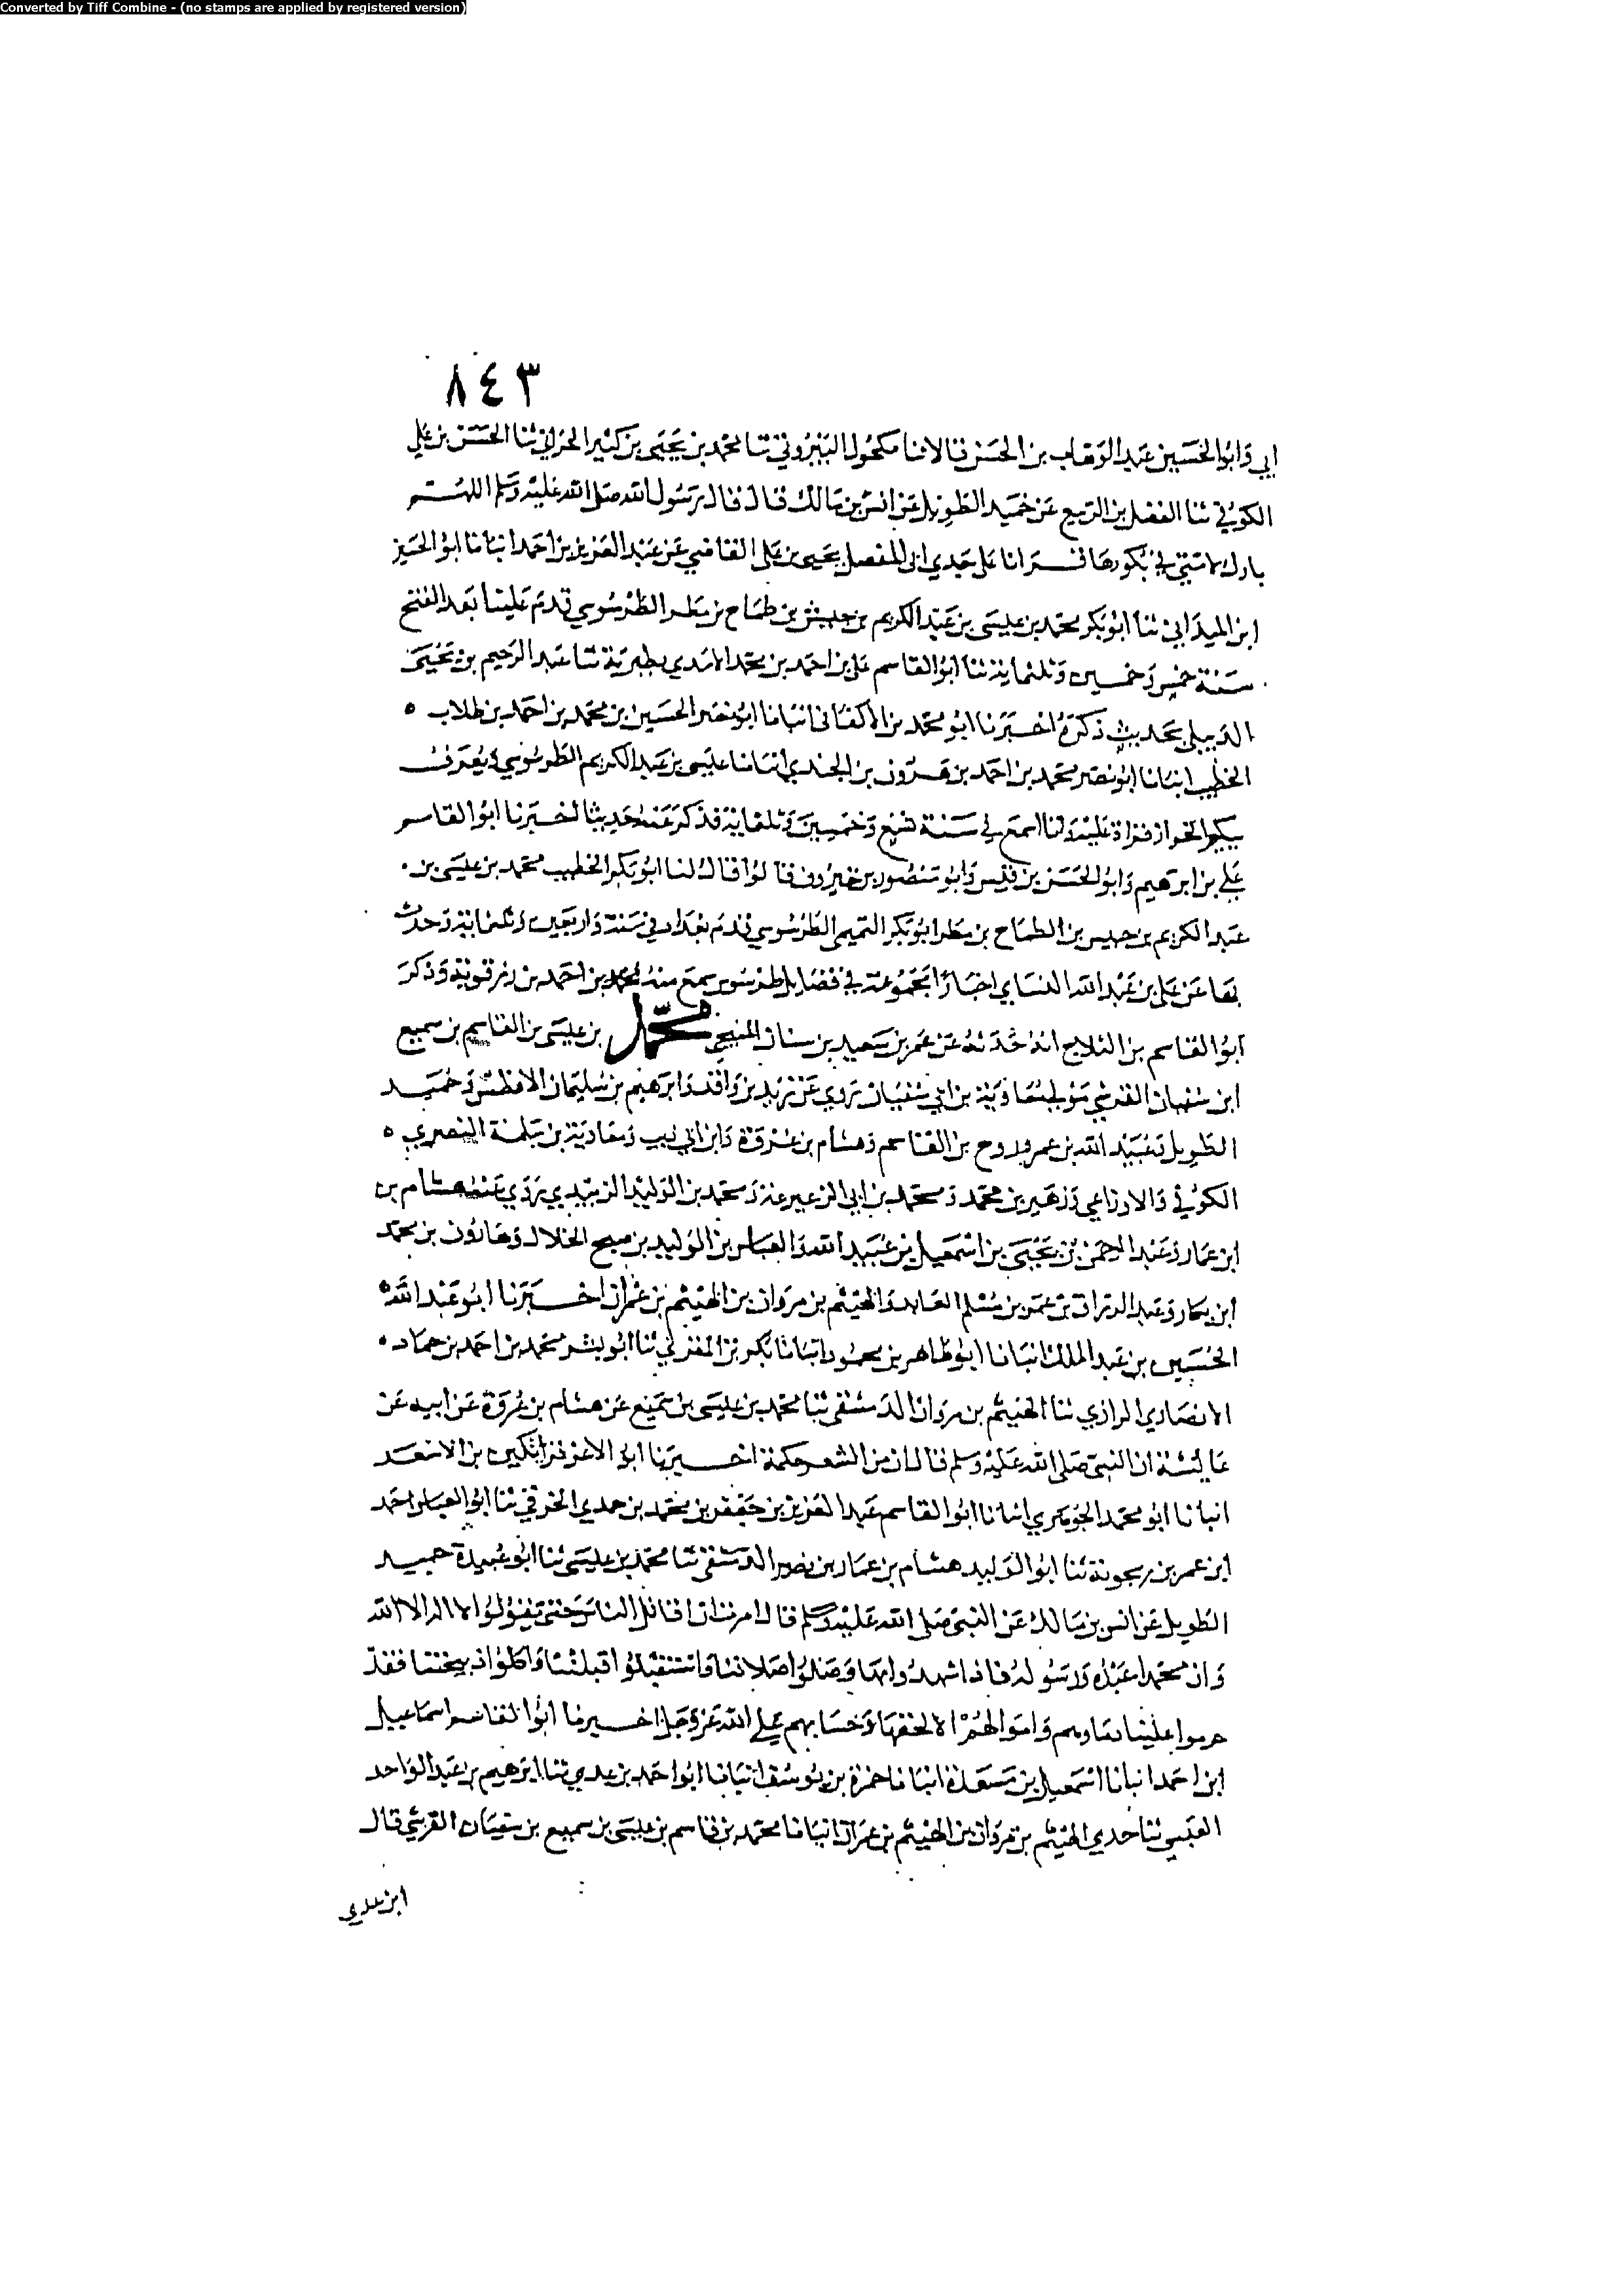 Converted by Tiff Combine - (no stamps are applied by registered version)
٨٤٣
ابي وابو الحسين عبد الوهاب بن الحسن قالا نا مكحول البيروتي ثنا محمد بن يحيى بن كثير الحراني ثنا الحسن بن علي
الكوفي ثنا الفضل بن الربيع عن حميد الطويل عن انس بن مالك قال قال رسول الله صلى الله عليه وسلم اللهم
بارك لامتي في بكورها قرانا على جدي ابي المفضل يحيى بن علي القاضي عن عبد العزيز بن احمد انبانا ابو الحسين
ابن الميداني ثنا ابو بكر محمد بن عيسى بن عبد الكريم بن حبيش بن طماح بن مطر الطرسوسي قدم علينا بعد الفتح
سنة خمس وخمسين وثلثماية ثنا ابو القاسم علي بن احمد بن محمد الاسدي بطبرية ثنا عبد الرحيم بن يحيى
الدبيلي بحديث ذكره اخبرنا ابو محمد بن الاكفاني انبانا ابو نصر الحسين بن محمد بن احمد بن طلاب ٥
الخطيب انبانا ابو نصر محمد بن احمد بن هرون بن الجندي انبانا عيسى بن عبد الكريم الطرسوسي ويعرف
ببكير الخواز قراة عليه وانا اسمع في سنة وخمسين وثلثماية فذكر عنه حديثا اخبرنا ابو القاسم
علي بن ابرهيم وابو الحسن بن قبيس وابو منصور بن خيرون قالوا قال لنا ابو بكر الخطيب محمد بن عيسى بن
عبد الكريم بن حبيس بن الطماح بن مطر ابو بكر التميمي الطرسوسي قدم بغداد في سنة واربعين وثلثماية وحدث
بها عن علي بن عبد الله الغساي اخبارا مجموعة في فضايل طرسوس سمع منه محمد بن احمد بن رزقويه وذكر
ابو القاسم بن الثلاج انه حدثه عن عمر بن سعيد بن سنان المنبجي محمد بن عيسى بن القاسم بن سميع
ابن سفيان القرشي مولى معاوية بن ابي سفيان روى عن زيد بن واقد وابرهيم بن سليمان الافطس وحميد
الطويل وعبيد الله بن عمر وروح بن القاسم وهشام بن عروة وابن ابي ذيب ومعاوية بن سلمة النصري ٥
الكوفي والاوزاعي وزهير بن محمد ومحمد بن ابي الزعيزعة ومحمد بن الوليد الزبيدي روى عنه هشام بن
ابن عمار وعبد الرحمن بن يحيى بن اسمعيل بن عبيد الله والعباس بن الوليد بن صبح الخلال وهارون بن محمد
ابن بكار وعبد الرزاق بن عمر بن مسلم العابد والهيثم بن مروان بن الهيثم بن عمران اخبرنا ابو عبد الله
الحسين بن عبد الملك انبانا ابو طاهر بن محمود انبانا بكر بن المقري ثنا ابو بشر محمد بن احمد بن حماد
الانصاري الرازي ثنا الهيثم بن مروان الدمشقي ثنا محمد بن عيسى بن سميع عن هشام بن عروة عن ابيه عن
عايشة ان النبي صلى الله عليه وسلم قال ان من الشعر حكمة اخبرنا ابو الاعز قراتكين بن الاسعد
انبانا ابو محمد الجوهري انبانا ابو القاسم عبد العزيز بن جعفر بن محمد بن حمدي الخرقي ثنا ابو العباس احمد
ابن عمر بن زنجويه ثنا ابو الوليد هشام بن عمار بن نصير الدمشقي ثنا محمد بن عيسى ثنا ابو عبيدة حميد
الطويل عن انس بن مالك عن النبي صلى الله عليه وسلم قال امرت ان اقاتل الناس حتى يقولوا لا اله الا الله
وان محمدا عبده ورسوله فاذا شهدوا بها وصلوا صلاتنا واستقبلوا قبلتنا واكلوا ذبيحتنا فقد
حرموا علينا دماوهم واموالهم الا بحقها وحسابهم على الله عز وجل اخبرنا ابو القاسم اسماعيل
ابن احمد انبانا اسمعيل بن مسعدة انبانا حمزة بن يوسف انبانا ابو احمد بن عدي ثنا ابرهيم بن عبد الواحد
العبسي ثنا جدي الهيثم بن مروان بن الهيثم بن عمران انبانا محمد بن قاسم بن عيسى بن سميع بن سفيان القرشي قال
ابن عدي